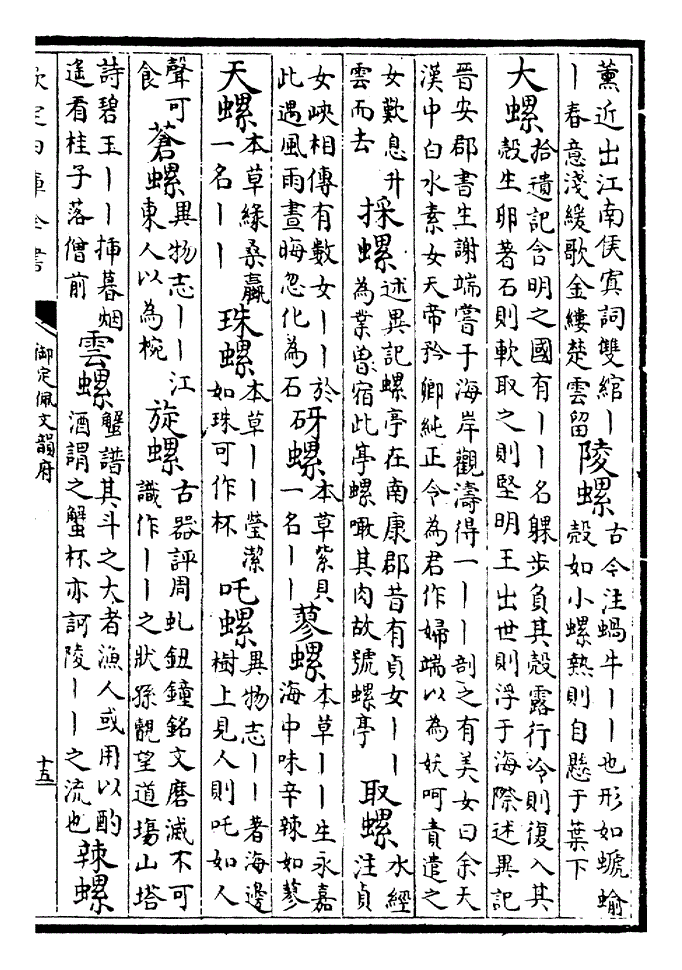 薰近出江南侯寘詞雙綰丨
丨春意淺緩歌金縷楚雲留
陵螺
古今注蝸牛丨丨也形如螔蝓
殼如小螺熱則自懸于葉下
大螺
拾遺記含明之國有丨丨名躶步負其殼露行冷則復入其
殼生卵著石則軟取之則堅明王出世則浮于海際述異記
晉安郡書生謝端嘗于海岸觀濤得一丨丨剖之有美女曰余天
漢中白水素女天帝矜卿純正令為君作婦端以為妖呵責遣之
女歎息升
雲而去
採螺
述異記螺亭在南康郡昔有貞女丨丨
為業曽宿此亭螺噉其肉故號螺亭
取螺
水經
注貞
女峽相傳有數女丨丨於
此遇風雨晝晦忽化為石
砑螺
本草紫貝
一名丨丨
蓼螺
本草丨丨生永嘉
海中味辛辣如蓼
天螺
本草緣桑蠃
一名丨丨
珠螺
本草丨丨瑩潔
如珠可作杯
吒螺
異物志丨丨著海邊
樹上見人則吒如人
聲可
食
蒼螺
異物志丨丨江
東人以為椀
旋螺
古器評周虬鈕鐘銘文磨滅不可
識作丨丨之狀孫覿望道塲山塔
詩碧玉丨丨揷暮烟
遙看桂子落僧前
雲螺
蟹譜其斗之大者漁人或用以酌
酒謂之蟹杯亦訶陵丨丨之流也
辣螺
欽定四庫全書
御定佩文韻府
十五